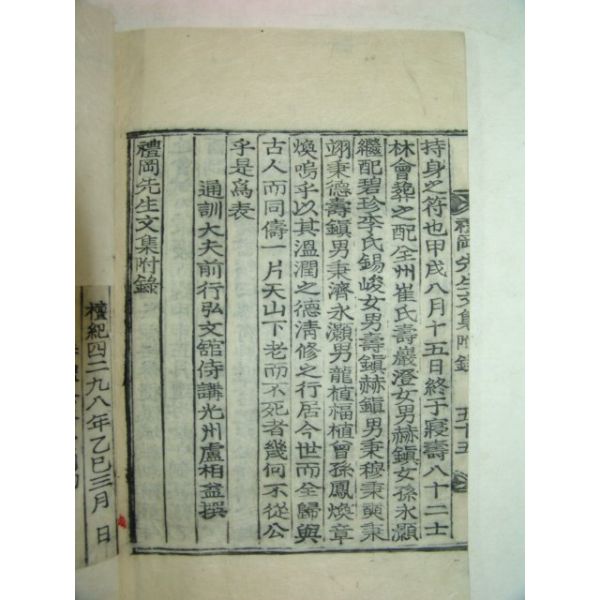 禮岡先生文集附錄
五十五
持身之符也甲戌八月十五日終于寢壽八十二士
林會葬之配全州崔氏壽巖澄女男赫鎭女孫永灝
繼配碧珍李氏錫峻女男壽鎭赫鎭男秉穆秉 秉
翊秉德壽鎭男秉濟永灝男龍植福植曾孫鳳煥章
煥嗚乎以其溫潤之德淸修之行居今世而全歸與
古人而同儔一片天山下老而不死者幾何不從公
乎是爲表
通訓大夫前行弘文舘侍講光州盧相益撰
禮岡先生文集附錄
檀紀四二九八年乙巳三月 日